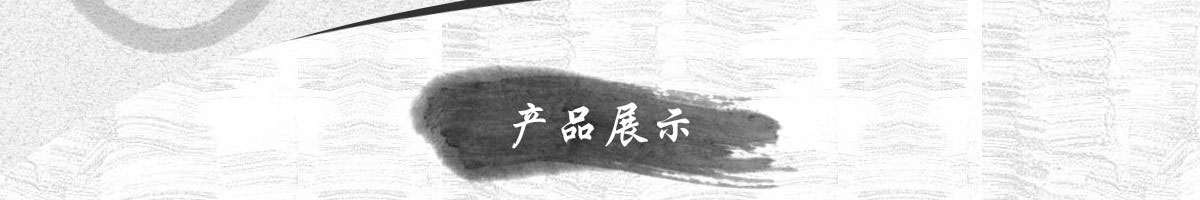 产品展示